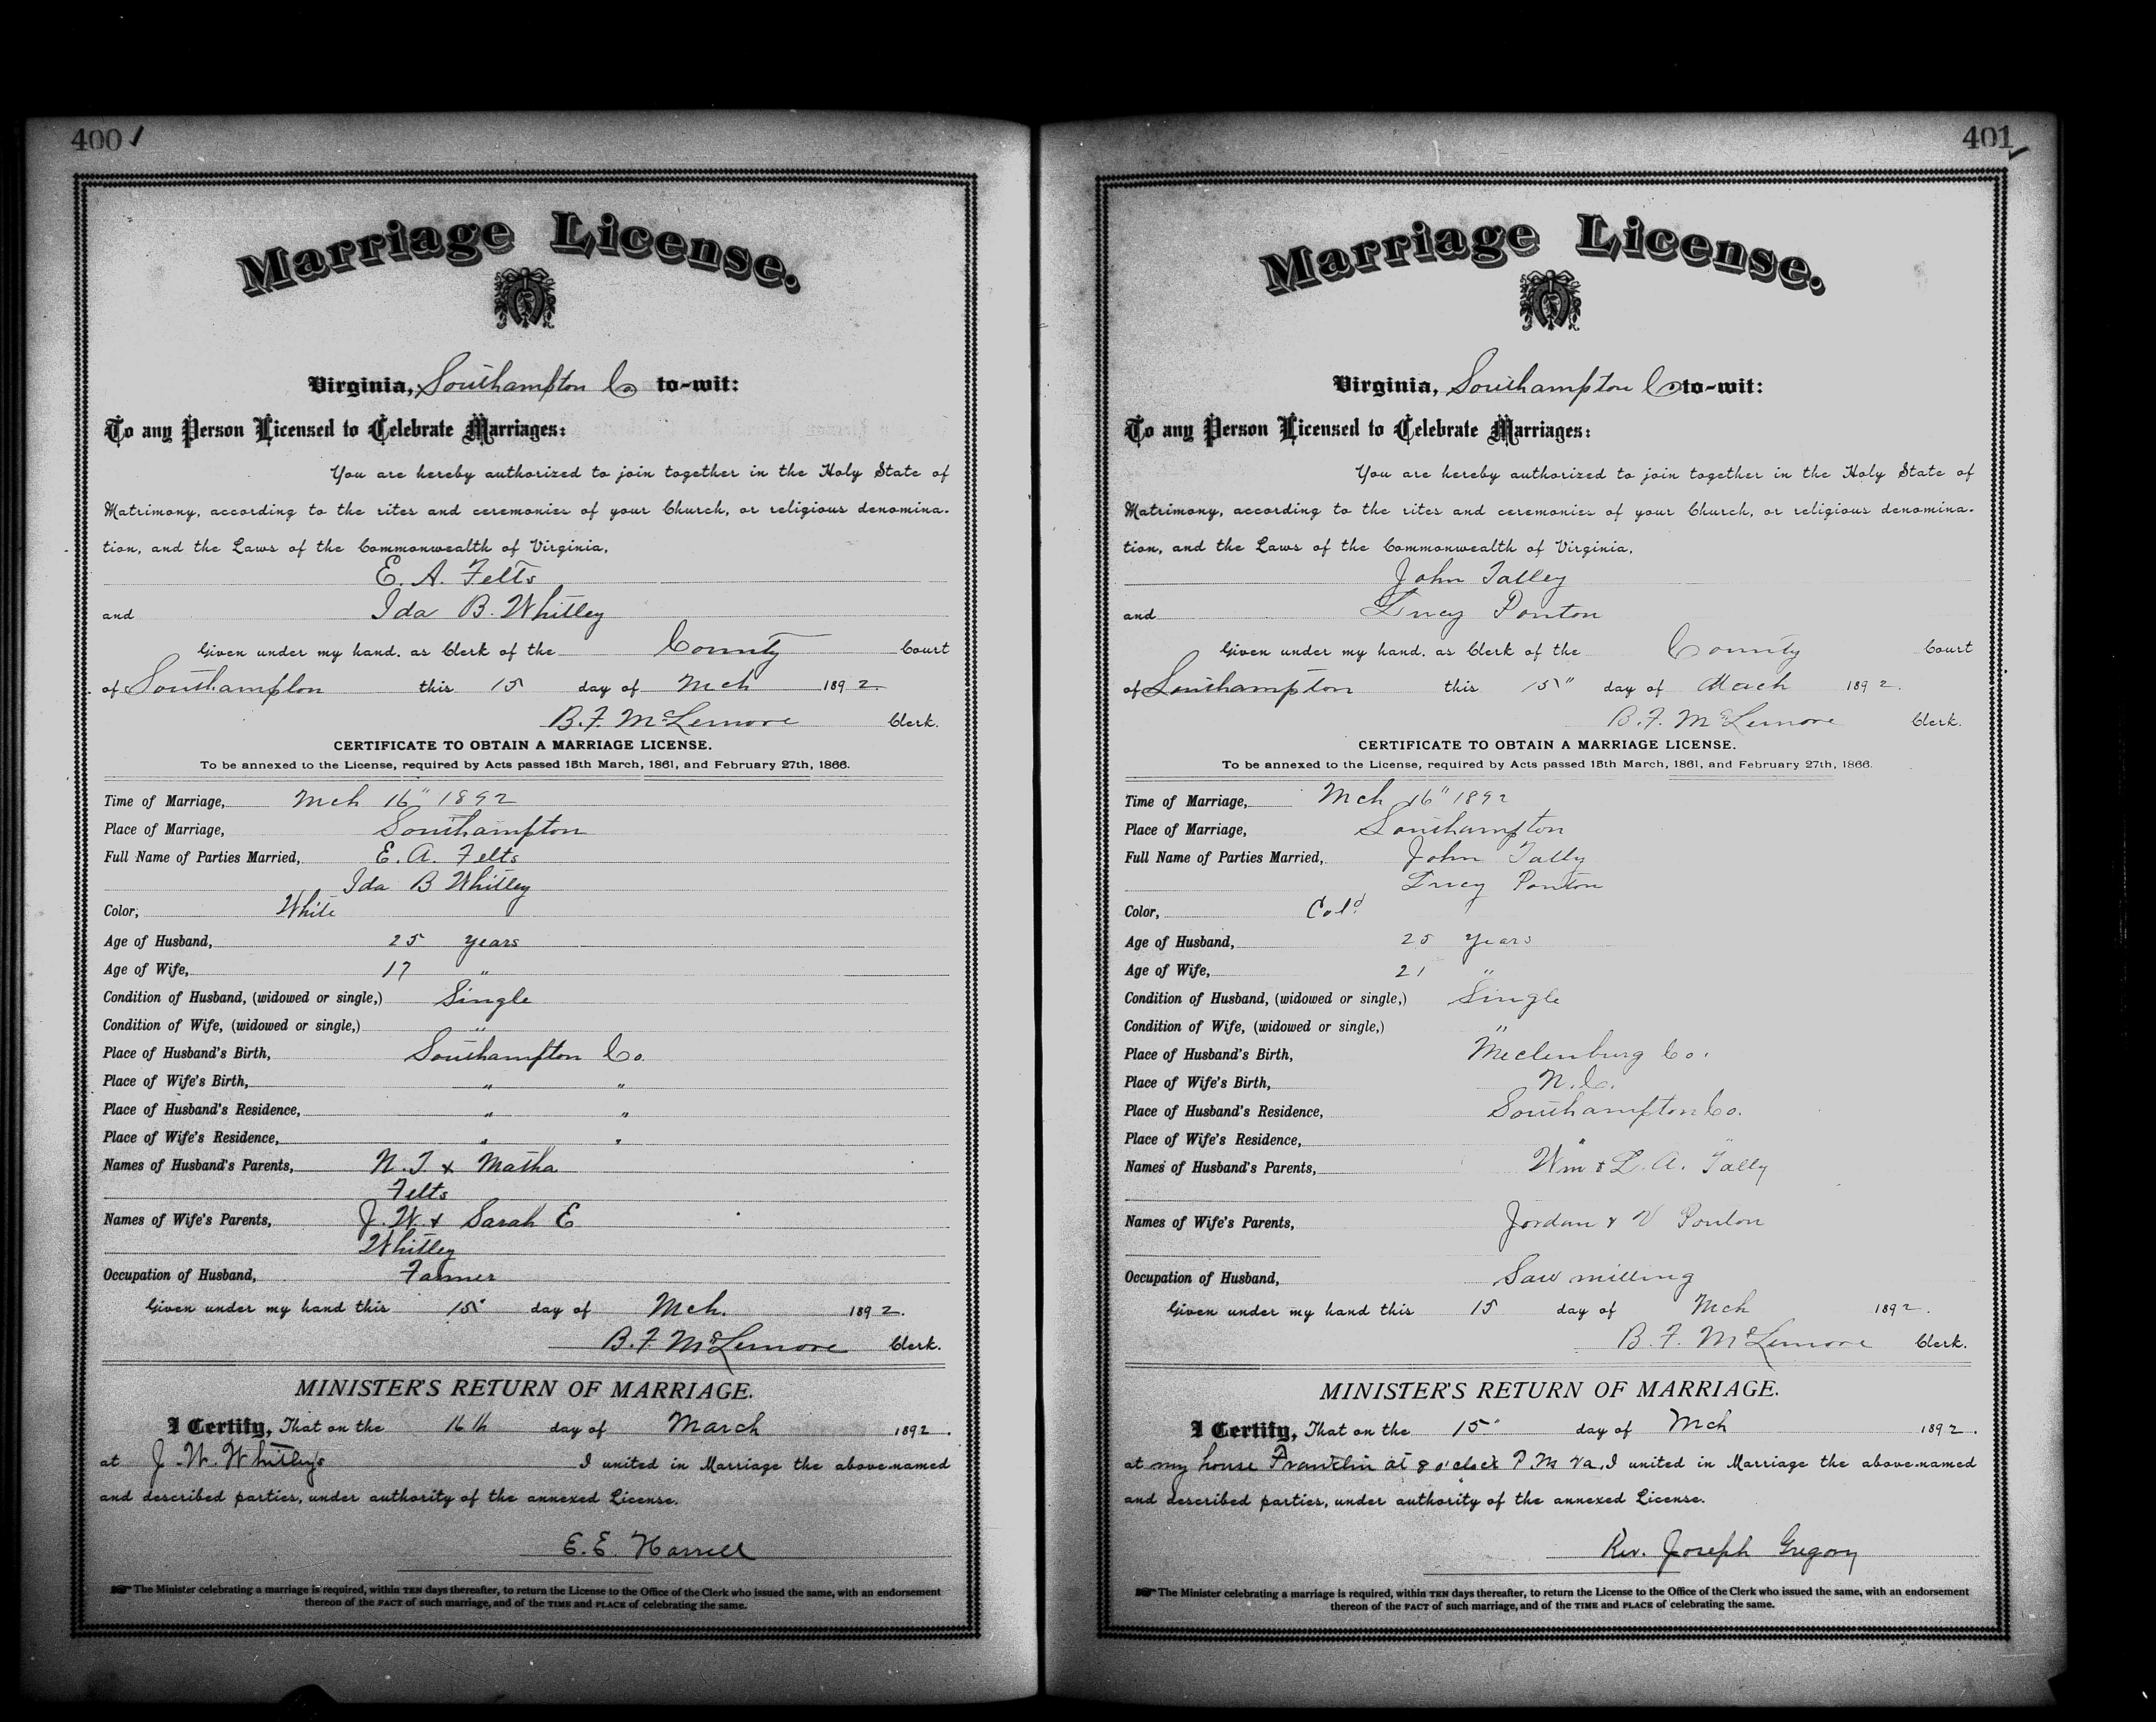 400
Marriage License.
Virginia, Southampton Co to-wit:
To any Person Licensed to Celebrate Marriages:
You are hereby authorized to join together in the Holy State of
Matrimony, according to the rites and ceremonies of your Church, or religious denomina-
tion, and the Laws of the Commonwealth of Virginia,
E. A. Felts
and Ida B. Whitley
Given under my hand, as Clerk of the County Court
of Southampton this 15 day of Mch 1892.
B. F. McLemore Clerk.
CERTIFICATE TO OBTAIN A MARRIAGE LICENSE.
To be annexed to the License, required by Acts passed 15th March, 1861, and February 27th, 1866.
Time of Marriage, Mch 16" 1892
Place of Marriage, Southampton
Full Name of Parties Married, E. A. Felts
Ida B Whitley
Color, White
Age of Husband, 25 years
Age of Wife, 17 "
Condition of Husband, (widowed or single,) Single
Condition of Wife, (widowed or single,) "
Place of Husband's Birth, Southampton Co.
Place of Wife's Birth, " "
Place of Husband's Residence, " "
Place of Wife's Residence, " "
Names of Husband's Parents, N. T. & Matha
Felts
Names of Wife's Parents, J. W. & Sarah E
Whitley
Occupation of Husband, Farmer
Given under my hand this 15" day of Mch. 1892.
B. F. McLemore Clerk.
MINISTER'S RETURN OF MARRIAGE.
I Certify, That on the 16th day of March 1892.
at J. W. Whitley's I united in Marriage the above-named
and described parties, under authority of the annexed License.
E. E. Harrell
The Minister celebrating a marriage is required, within TEN days thereafter, to return the License to the Office of the Clerk who issued the same, with an endorsement
thereof of the FACT of such marriage, and of the TIME and PLACE of celebrating the same.
401
Marriage License.
Virginia, Southampton Co to-wit:
To any Person Licensed to Celebrate Marriages:
You are hereby authorized to join together in the Holy State of
Matrimony, according to the rites and ceremonies of your Church, or religious denomina-
tion, and the Laws of the Commonwealth of Virginia,
John Talley
and Lucy Ponton
Given under my hand, as Clerk of the County Court
of Southampton this 15" day of Mach 1892.
B. F. McLemore Clerk.
CERTIFICATE TO OBTAIN A MARRIAGE LICENSE.
To be annexed to the License, required by Acts passed 15th March, 1861, and February 27th, 1866.
Time of Marriage, Mch 16" 1892
Place of Marriage, Southampton
Full Name of Parties Married, John Tally
Lucy Ponton
Color, Cold
Age of Husband, 25 years
Age of Wife, 21 "
Condition of Husband, (widowed or single,) Single
Condition of Wife, (widowed or single,) "
Place of Husband's Birth, Meclenburg Co.
Place of Wife's Birth, N. C.
Place of Husband's Residence, Southampton Co.
Place of Wife's Residence, "
Names of Husband's Parents, Wm & L. A. Tally
Names of Wife's Parents, Jordan & V Ponton
Occupation of Husband, Saw milling
Given under my hand this 15 day of Mch 1892.
B. F. McLemore Clerk.
MINISTER'S RETURN OF MARRIAGE.
I Certify, That on the 15" day of Mch 1892.
at my house Franklin at 8 o'clock P M Va. I united in Marriage the above-named
and described parties, under authority of the annexed License.
Rev. Joseph Gregory
The Minister celebrating a marriage is required, within TEN days thereafter, to return the License to the Office of the Clerk who issued the same, with an endorsement
thereon of the FACT of such marriage, and of the TIME and PLACE of celebrating the same.